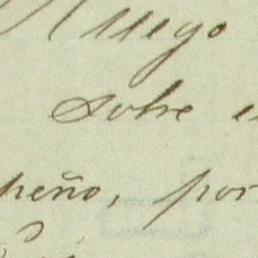 Ruego
sobre e
peño, por